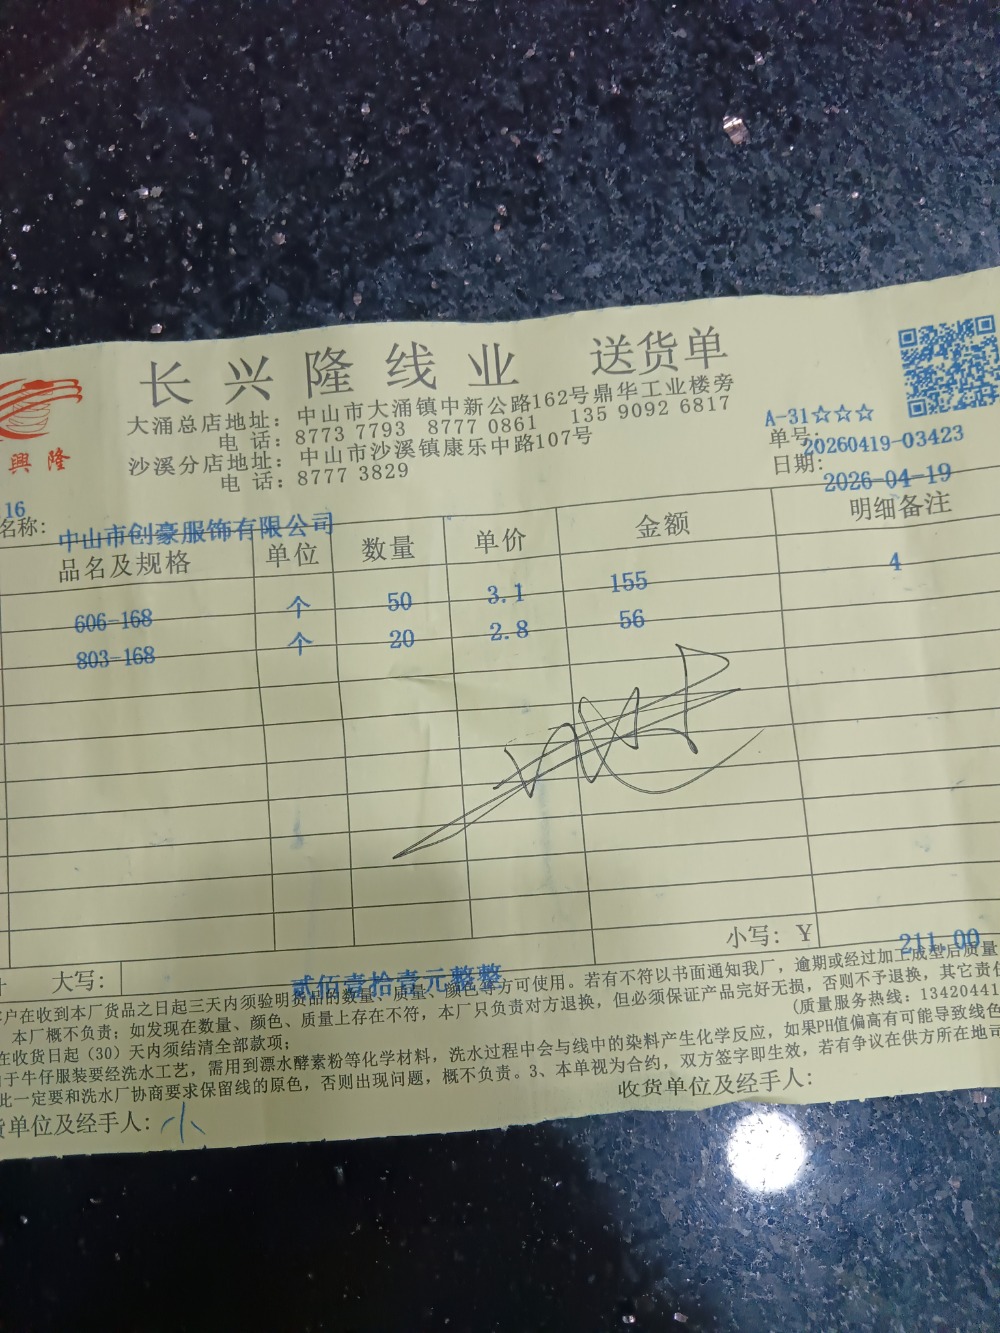 长兴隆线业 送货单
大涌总店地址：中山市大涌镇中新公路162号鼎华工业楼旁
电 话：8773 7793 8777 0861 135 9092 6817
沙溪分店地址：中山市沙溪镇康乐中路107号
电 话：8777 3829
興隆
A-31☆☆☆
单号：20260419-03423
日期：2026-04-19
16
名称：中山市创豪服饰有限公司
品名及规格 单位 数量 单价 金额 明细备注
606-168 个 50 3.1 155 4
803-168 个 20 2.8 56
小写：Y 211.00
大写：贰佰壹拾壹元整整
户在收到本厂货品之日起三天内须验明货品的数量、质量、颜色等方可使用。若有不符以书面通知我厂，逾期或经过加工成型后质量
本厂概不负责；如发现在数量、颜色、质量上存在不符，本厂只负责对方退换，但必须保证产品完好无损，否则不予退换，其它责任
在收货日起（30）天内须结清全部款项；
(质量服务热线：13420441
于牛仔服装要经洗水工艺，需用到漂水酵素粉等化学材料，洗水过程中会与线中的染料产生化学反应，如果PH值偏高有可能导致线色
此一定要和洗水厂协商要求保留线的原色，否则出现问题，概不负责。3、本单视为合约，双方签字即生效，若有争议在供方所在地司
货单位及经手人：小
收货单位及经手人：